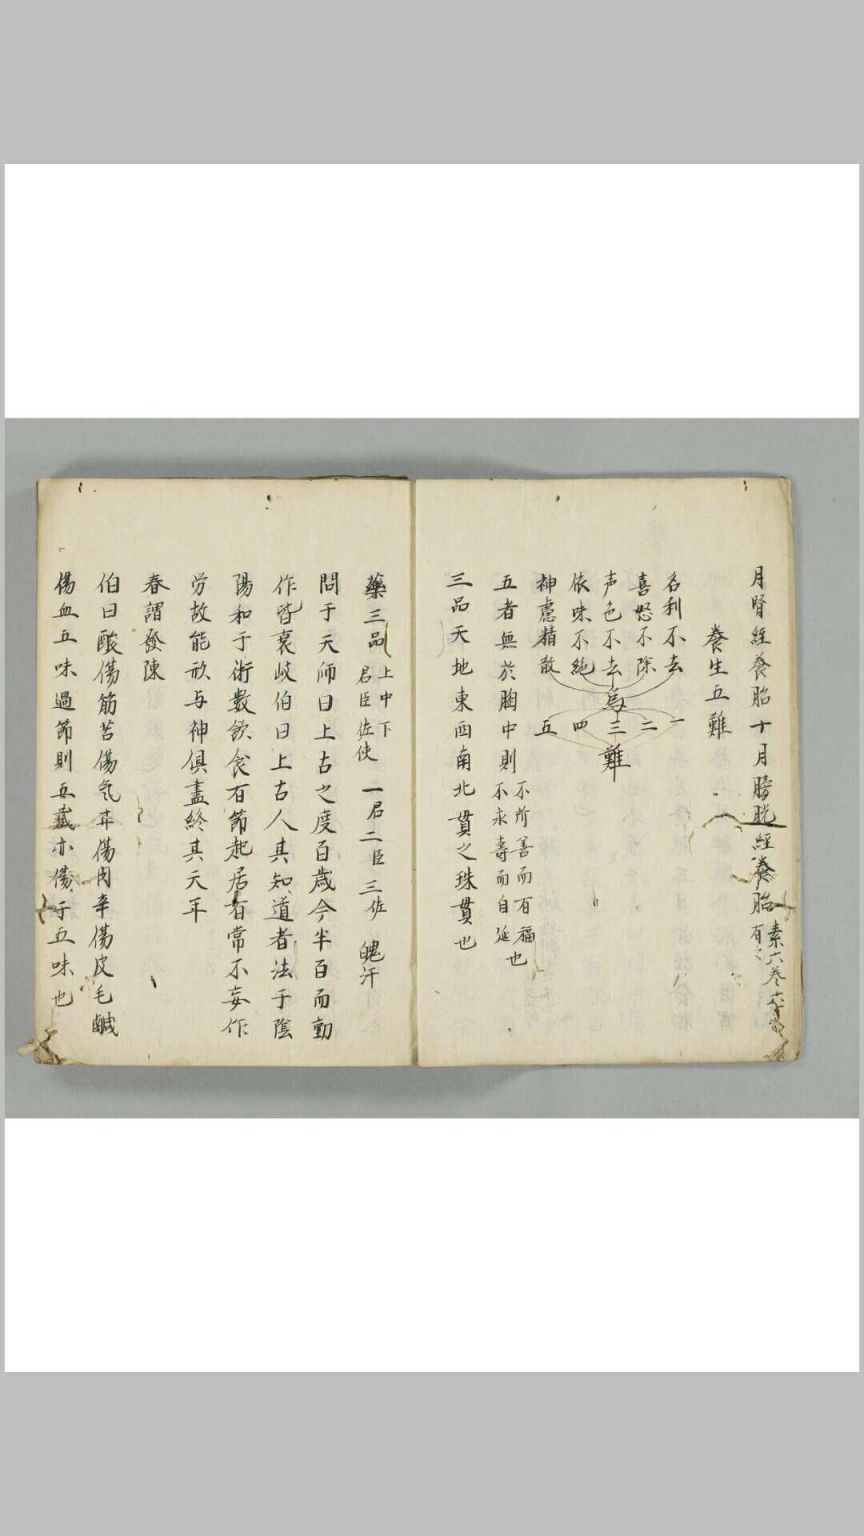 月腎経養胎十月膀胱経養胎
素六巻
有之
養生五難
名利不去 一
喜怒不除 二
声色不去 三
依味不絶 四
神慮精散 五
為難
五者無於胸中則
不所善而有福也
不永壽而自延
三品天地東西南北貫之珠貫也
藥三品
上中下
君臣佐使
一君二臣三佐
魄汗
問于天師曰上古之度百歳今半百而動
作皆衰岐伯曰上古人其知道者法于陰
陽和于術數飲食有節起居有常不妄作
労故能形与神俱盡終其天年
春謂發陳
伯曰酸傷筋苦傷気甘傷肉辛傷皮毛鹹
傷血五味過節則五藏亦傷于五味也